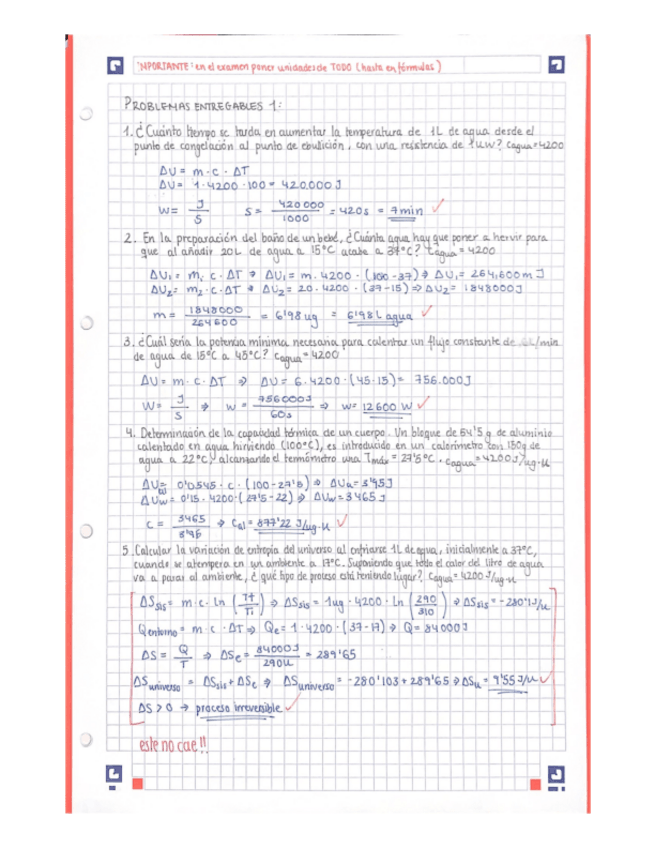 IMPORTANTE: en el examen poner unidades de TODO (hasta en fórmulas)
PROBLEMAS ENTREGABLES 1:
1. ¿Cuánto tiempo se tarda en aumentar la temperatura de 1L de agua desde el
punto de congelación al punto de ebulición, con una resistencia de 1uw? Cagua=4200
ΔU = m·c·ΔT
ΔU= 1·4200·100 = 420.000 J
W= J/S S= 420000/1000 = 420s = 7min ✓
2. En la preparación del baño de un bebé, ¿Cuánta agua hay que poner a hervir para
que al añadir 20L de agua a 15°C acabe a 37°C? Cagua = 4200
ΔU₁= m₁·c·ΔT → ΔU₁= m·4200·(100-37) ⇒ ΔU₁= 264.600m J
ΔU₂= m₂·c·ΔT → ΔU₂= 20·4200·(37-15) ⇒ ΔU₂= 1848000J
m = 1848000/264600 = 6'98 ug = 6'98 L agua ✓
3. ¿Cuál sería la potencia mínima necesaria para calentar un flujo constante de 6L/min
de agua de 15°C a 45°C? Cagua=4200
ΔU= m·c·ΔT ⇒ ΔU= 6·4200·(45-15)= 756.000J
W= J/S ⇒ w= 756000J/60s ⇒ w= 12600 W ✓
4. Determinación de la capacidad térmica de un cuerpo. Un bloque de 54'5 g de aluminio
calentado en agua hirviendo (100°C), es introducido en un calorímetro con 150g de
agua a 22°C, alcanzando el termómetro una Tmáx = 27'5°C. Cagua=4200J/ug·u
ΔU= 0'0545·c·(100-27'5) ⇒ ΔU= 3'95J
ΔUw= 0'15·4200·(27'5-22) ⇒ ΔUw= 3465J
c = 3465/3'95 ⇒ Cal = 877'22 J/ug·u ✓
5. Calcular la variación de entropía del universo al enfriarse 1L de agua, inicialmente a 37°C,
cuando se atempera en un ambiente a 17°C. Suponiendo que todo el calor del litro de agua
va a parar al ambiente, ¿qué tipo de proceso está teniendo lugar? Cagua=4200 J/ug·u
ΔSsis = m·c·Ln (Tf/Ti) ⇒ ΔSsis = 1ug·4200·Ln (290/310) ⇒ ΔSsis = -280'1J/u
Qentorno = m·c·ΔT ⇒ Qe= 1·4200·(37-17) ⇒ Q= 84000J
ΔS= Q/T ⇒ ΔSe= 84000J/290u = 289'65
ΔSuniverso = ΔSsis+ΔSe ⇒ ΔSuniverso= -280'103+289'65 ⇒ ΔSu= 9'55 J/u ✓
ΔS > 0 → proceso irreversible ✓
este no cae!!